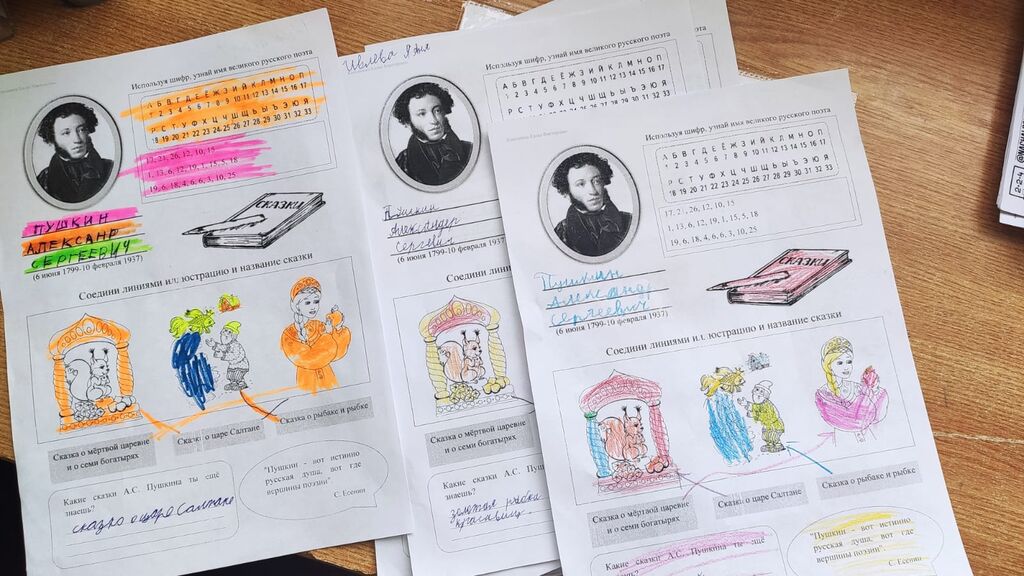 Используя шифр, узнай имя великого русского поэта
А Б В Г Д Е Ё Ж З И Й К Л М Н О П
1 2 3 4 5 6 7 8 9 10 11 12 13 14 15 16 17
Р С Т У Ф Х Ц Ч Ш Щ Ь Ы Ъ Э Ю Я
18 19 20 21 22 23 24 25 26 27 28 29 30 31 32 33
17, 21, 26, 12, 10, 15
1, 13, 6, 12, 19, 1, 15, 5, 18
19, 6, 18, 4, 6, 6, 3, 10, 25
СКАЗКИ
ПУШКИН
АЛЕКСАНР
СЕРГЕЕВИЧ
(6 июня 1799-10 февраля 1937)
Соедини линиями иллюстрацию и название сказки
Сказка о мёртвой царевне
и о семи богатырях
Сказка о царе Салтане
Сказка о рыбаке и рыбке
Какие сказки А.С. Пушкина ты ещё
знаешь?
"Пушкин - вот истинно
русская душа, вот где
вершины поэзии"
С. Есенин
Используя шифр, узнай имя великого русского поэта
А Б В Г Д Е Ё Ж З И Й К Л М Н О П
1 2 3 4 5 6 7 8 9 10 11 12 13 14 15 16 17
Пушкин
Александр
Сергевич
(6 июня 1799-10 февраля
Соедини лини
Сказка о мёртвой царевне
и о семи богатырях
Какие сказки А.С.
знаешь?
золотая рыбка
красавица
Используя шифр, узнай имя великого русского поэта
А Б В Г Д Е Ё Ж З И Й К Л М Н О П
1 2 3 4 5 6 7 8 9 10 11 12 13 14 15 16 17
Р С Т У Ф Х Ц Ч Ш Щ Ь Ы Ъ Э Ю Я
18 19 20 21 22 23 24 25 26 27 28 29 30 31 32 33
17, 21, 26, 12, 10, 15
1, 13, 6, 12, 19, 1, 15, 5, 18
19, 6, 18, 4, 6, 6, 3, 10, 25
СКАЗКИ
Пушкин
Александр
Сергеевич
(6 июня 1799-10 февраля 1937)
Соедини линиями иллюстрацию и название сказки
Сказка о мёртвой царевне
и о семи богатырях
Сказка о царе Салтане
Сказка о рыбаке и рыбке
Какие сказки А.С. Пушкина ты ещё
знаешь?
"Пушкин - вот истинно
русская душа, вот где
вершины поэзии"
С. Есенин